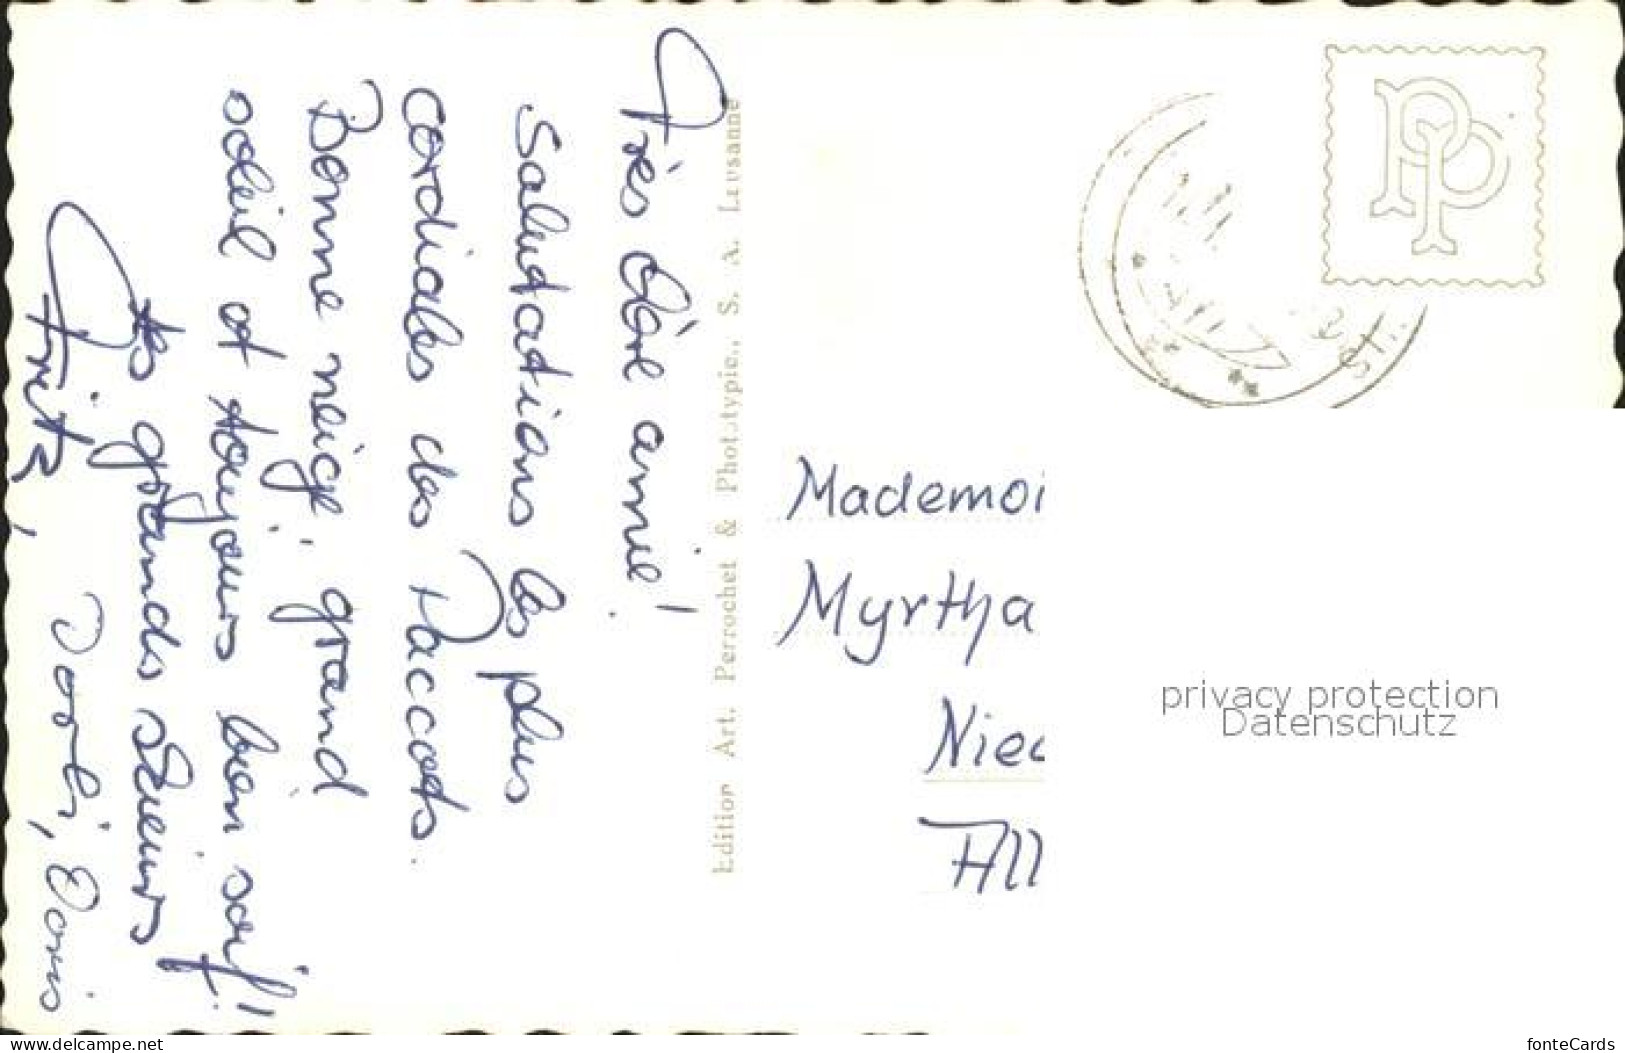 Très chère amie!
Salutations les plus
cordiales des Paccots.
Bonne neige, grand
soleil et toujours bien soif!!
tes grands skieurs!
Fritz,
Doris
Edition Art. Perrochet & Phototypie., S. A. Lausanne
PP
St.
Mademoi
Myrtha
Nied
All
privacy protection
Datenschutz
www.delcampe.net
fonteCards